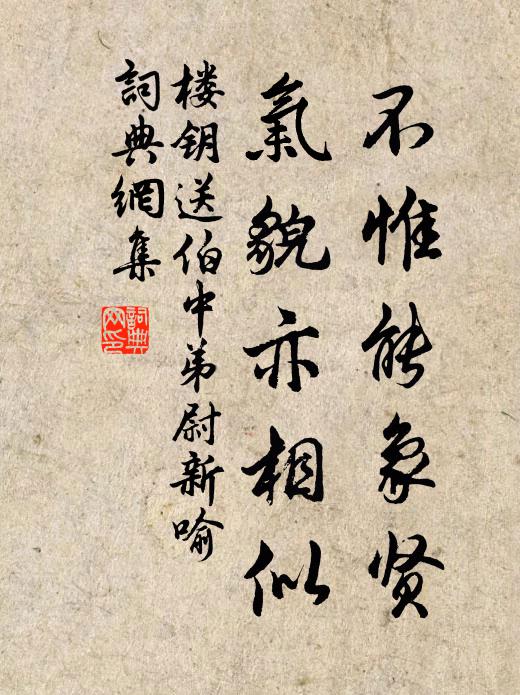 不惟能象贤
氣貌亦相似
楼钥送伯中弟尉新喻
詞典網集
詞典
网印